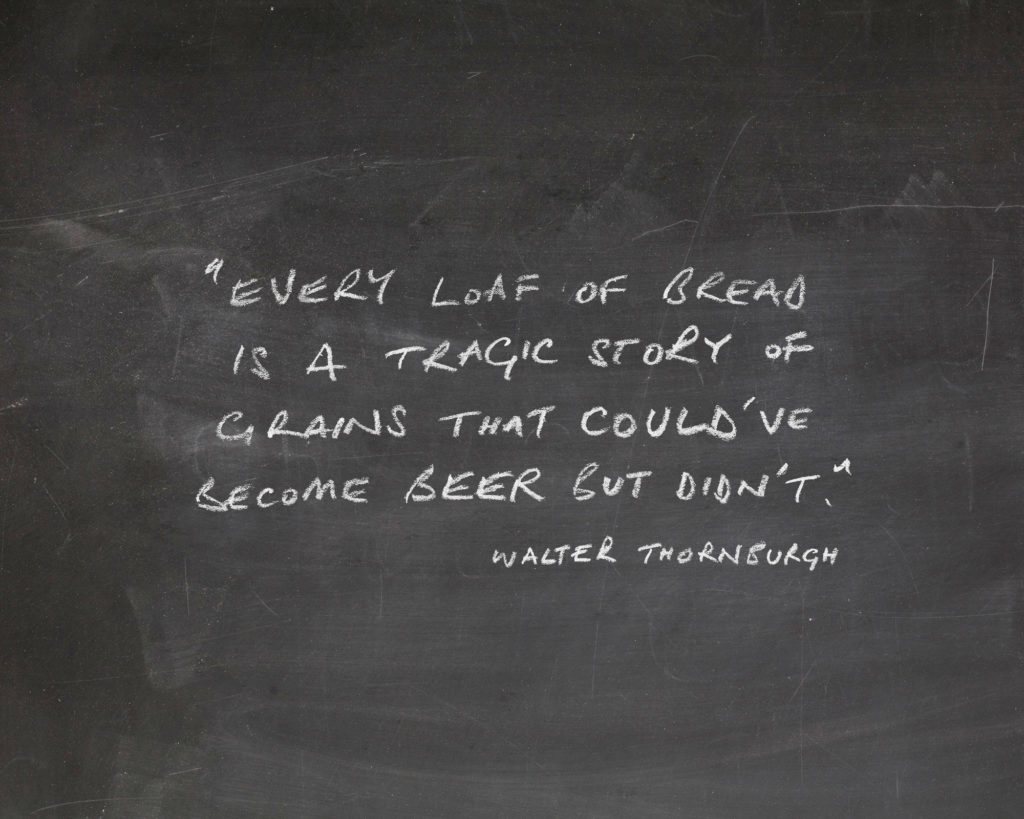 "EVERY LOAF OF BREAD
IS A TRAGIC STORY OF
GRAINS THAT COULD'VE
BECOME BEER BUT DIDN'T."
WALTER THORNBURGH